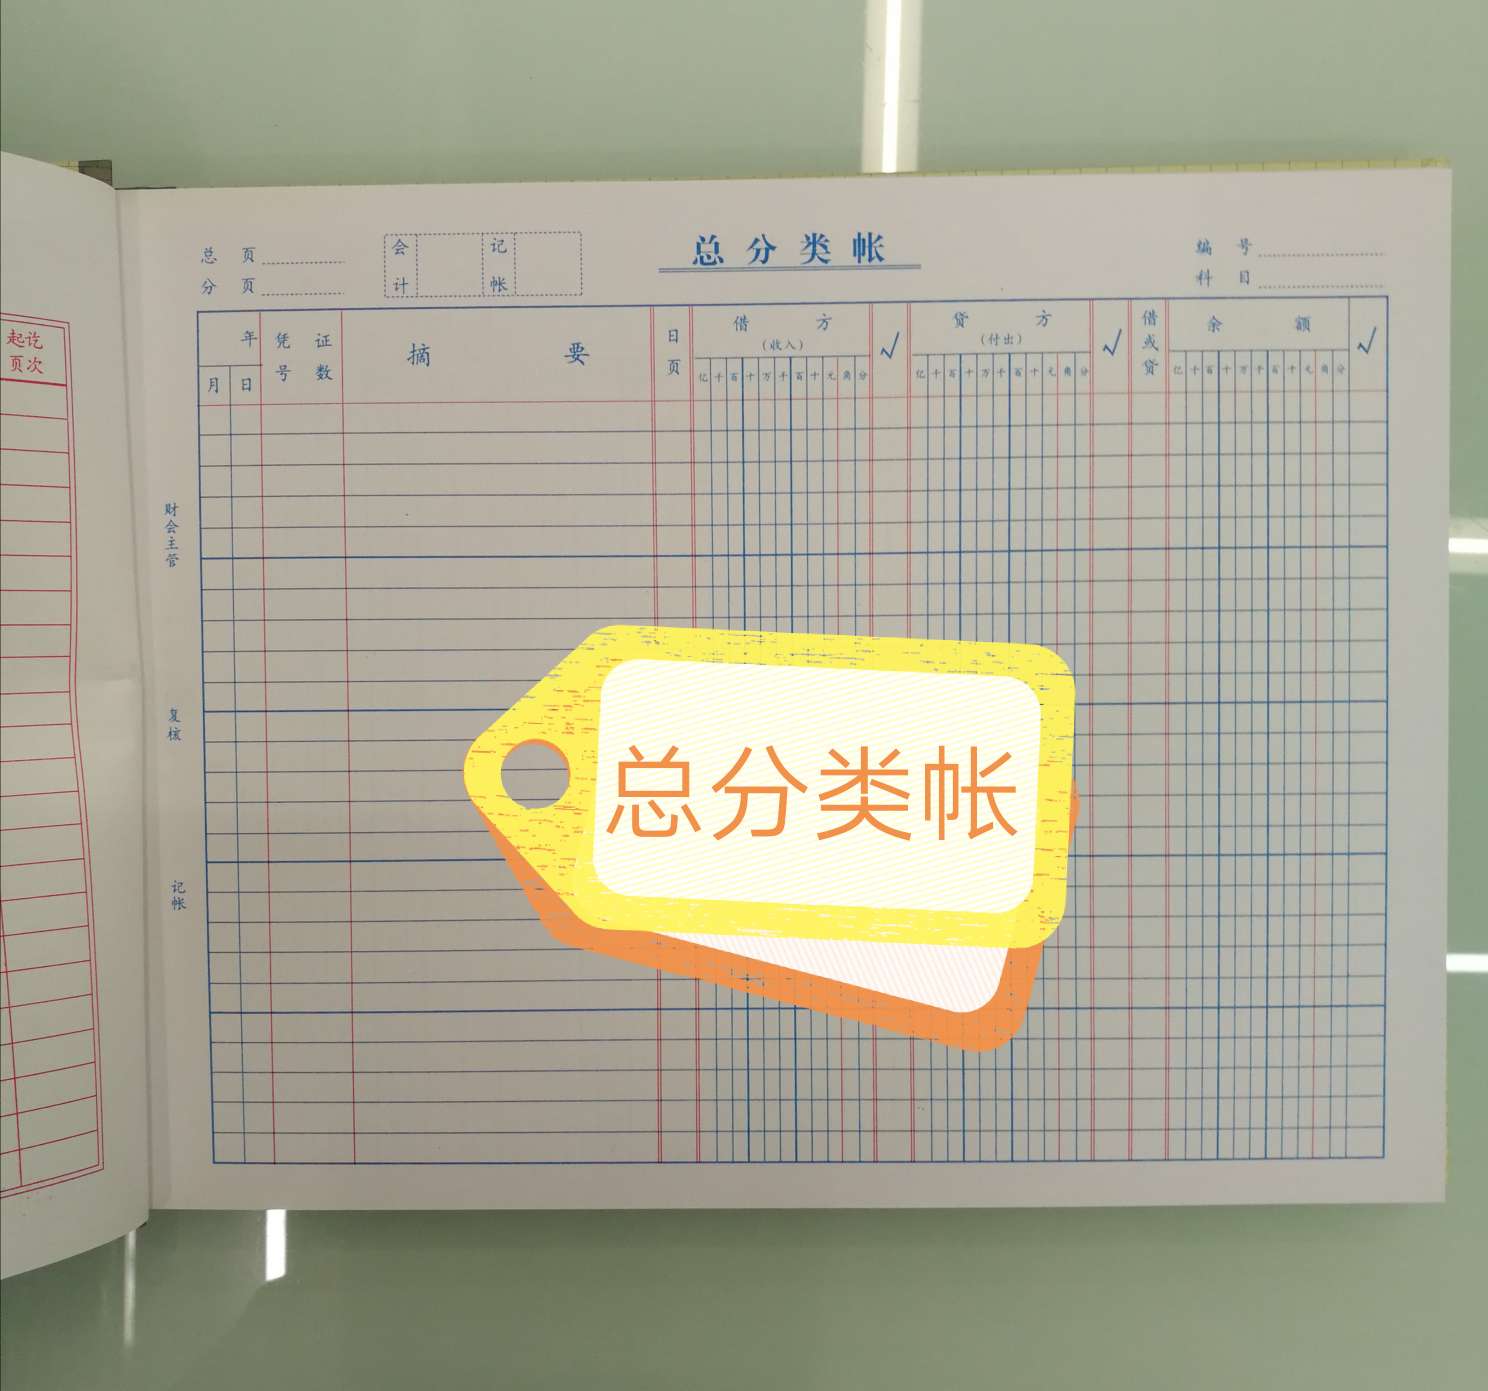 总分类帐
总 页
分 页
会计
记帐
编 号
科 目
年
月 日
凭证号数
摘 要
日页
借 方
(收入)
亿千百十万千百十元角分
√
贷 方
(付出)
亿千百十万千百十元角分
√
借或贷
余 额
亿千百十万千百十元角分
√
起讫
页次
财会主管
复核
记帐
总分类帐